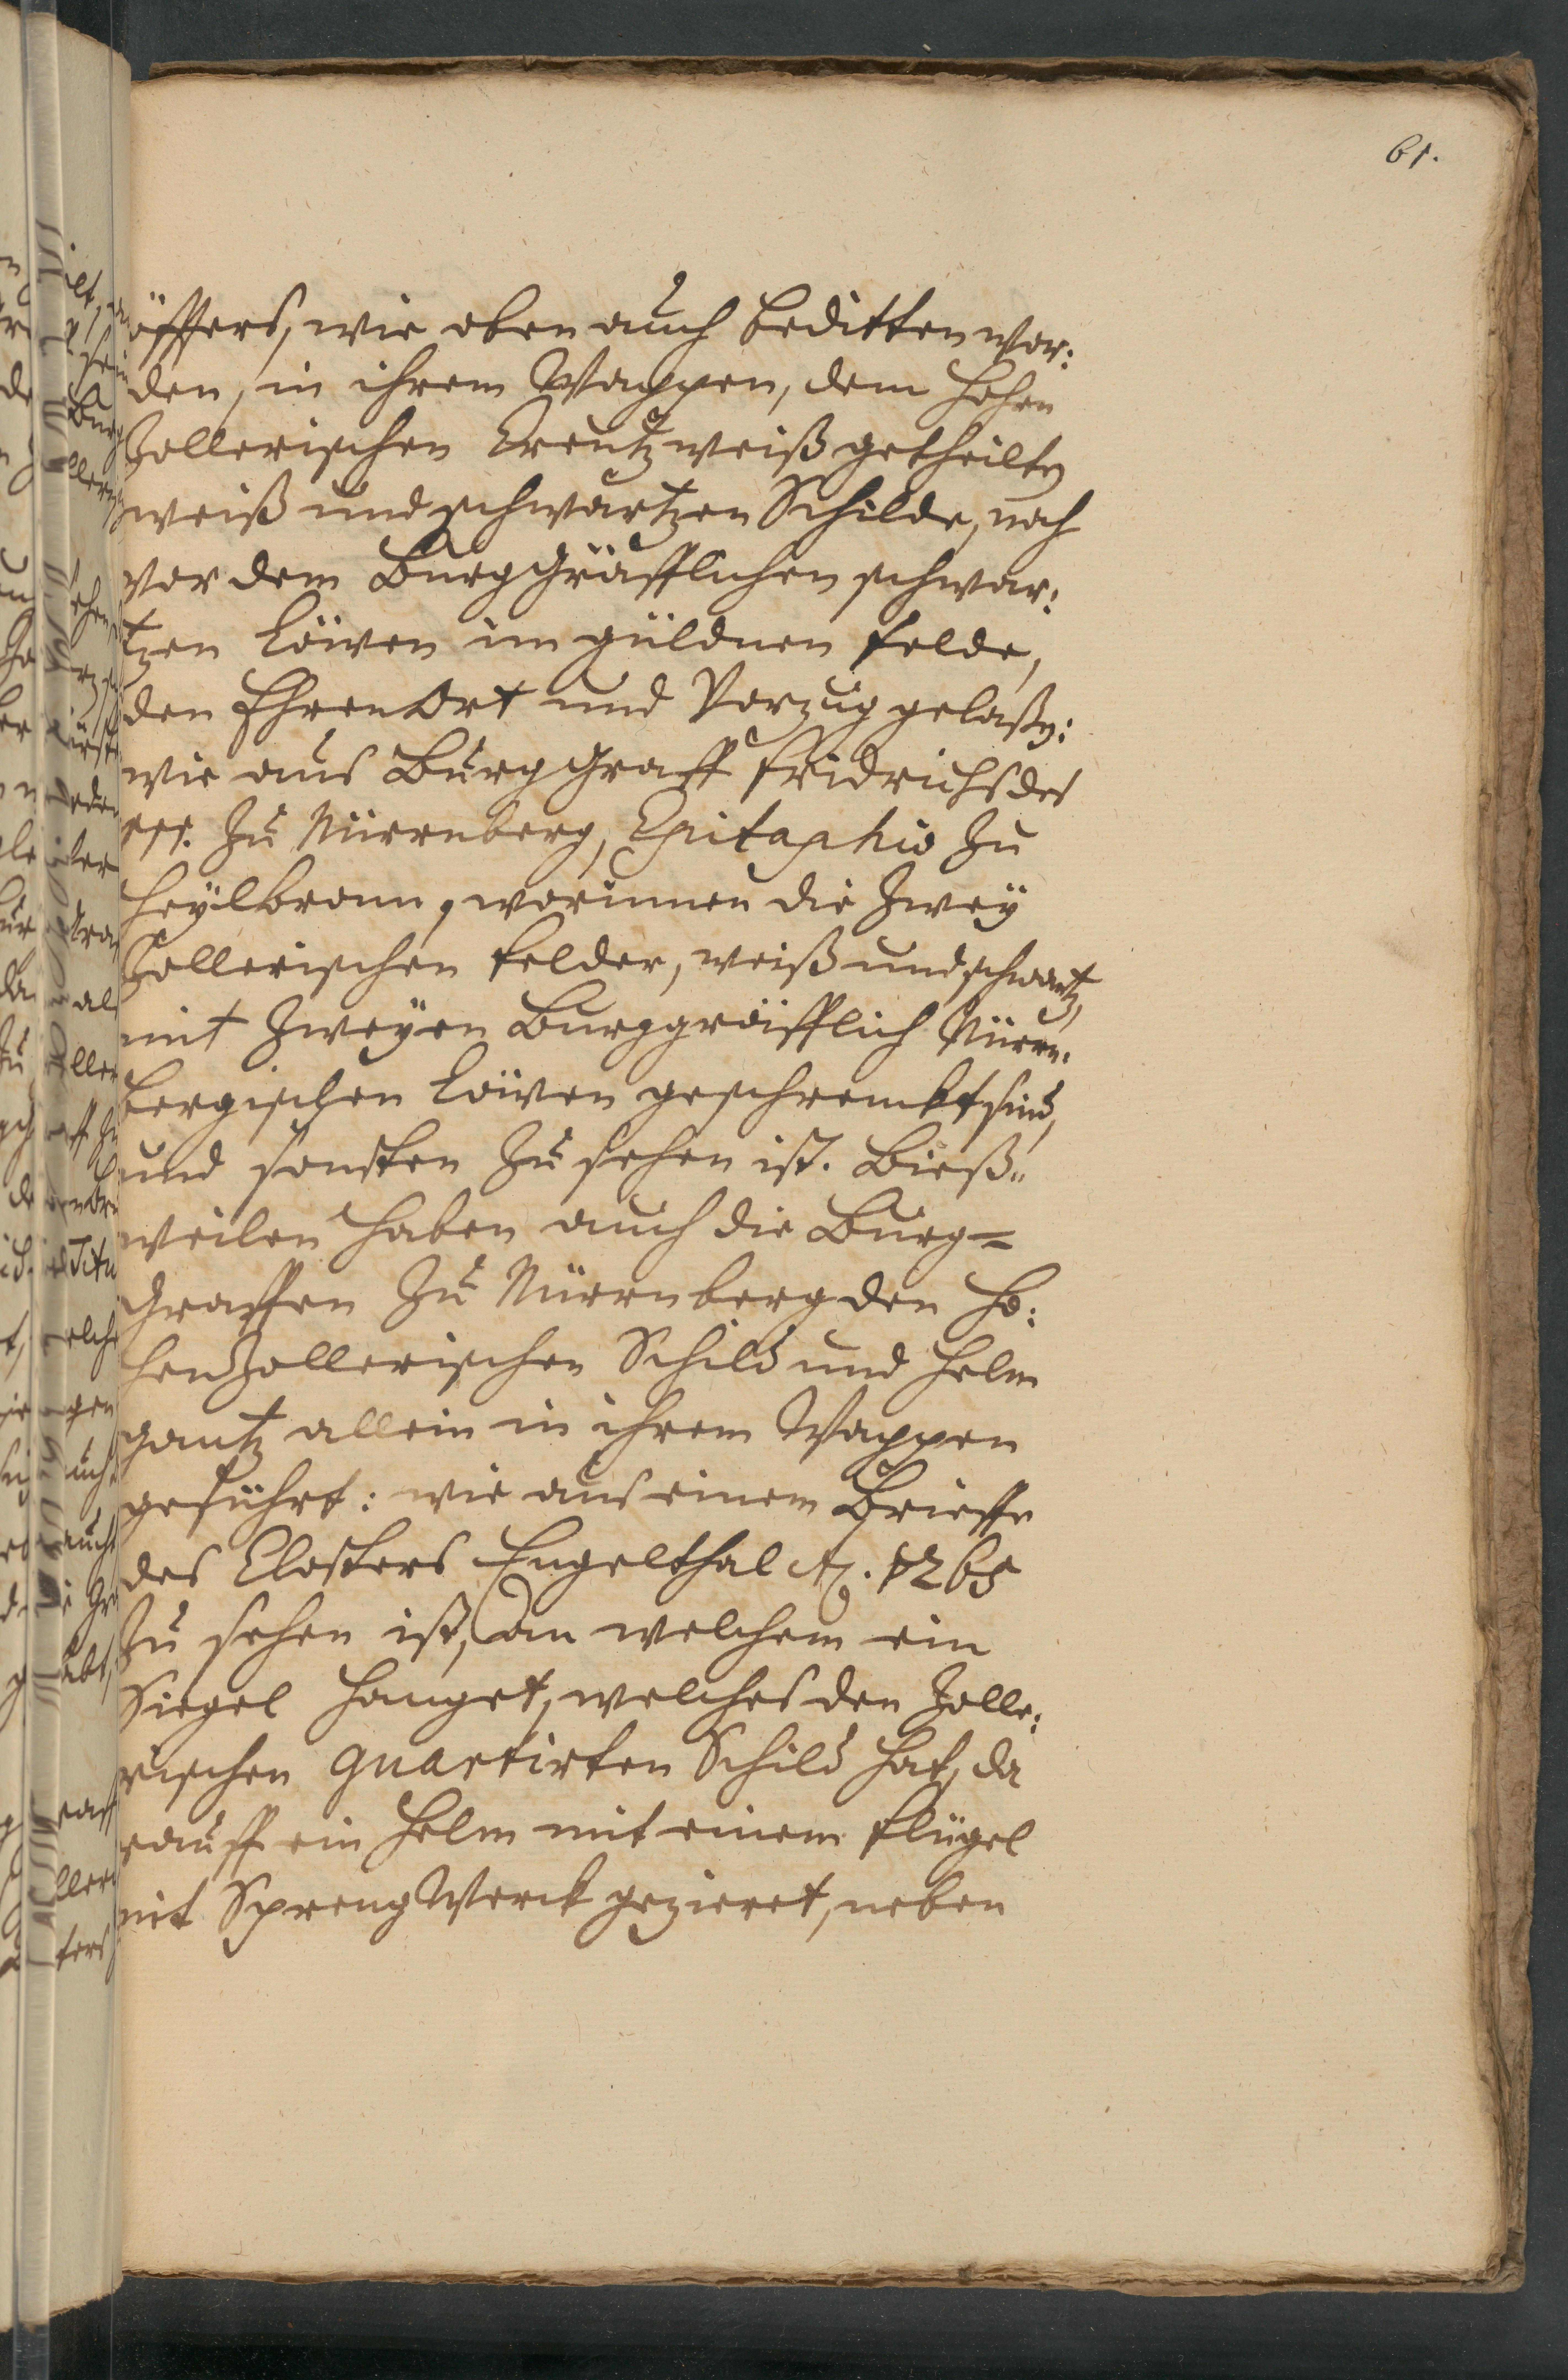 61.
öffters, wie oben auch beditten wor:
den, in ihrem Wappen, dem Hohen
Zollerischen Creutzweiß getheilten
weiß und schwartzen Schilde, noch
vor dem Burggräfflichen schwar:
tzen Löwen im güldnen Felde,
den Ehren Ort und Vorzug gelaßen:
wie aus Burggraff Fridrichs des
III. zu Nürrnberg, Epitaphio zu
Heÿlbronn, worinnen die zweÿ
Zollerischen Felder, weiß und schwartz,
mit zweÿen Burggräfflich Nürrn:
bergischen Löwen geschrenckt sind,
und sonsten zu sehen ist. Bieß„
weilen haben auch die Burg=
Graffen zu Nürrnberg den Ho:
henZollerischen Schild und Helm
gantz allein in ihrem Wappen
geführt: wie aus einem Brieffe
des Closters Engelthal Aō. 1265
zu sehen ist, an welchem ein
Siegel hanget, welches den Zolle:
rischen quartirten Schild hat, da
rauff ein Helm mit einem Flügel
mit SprengWerck gezieret, neben